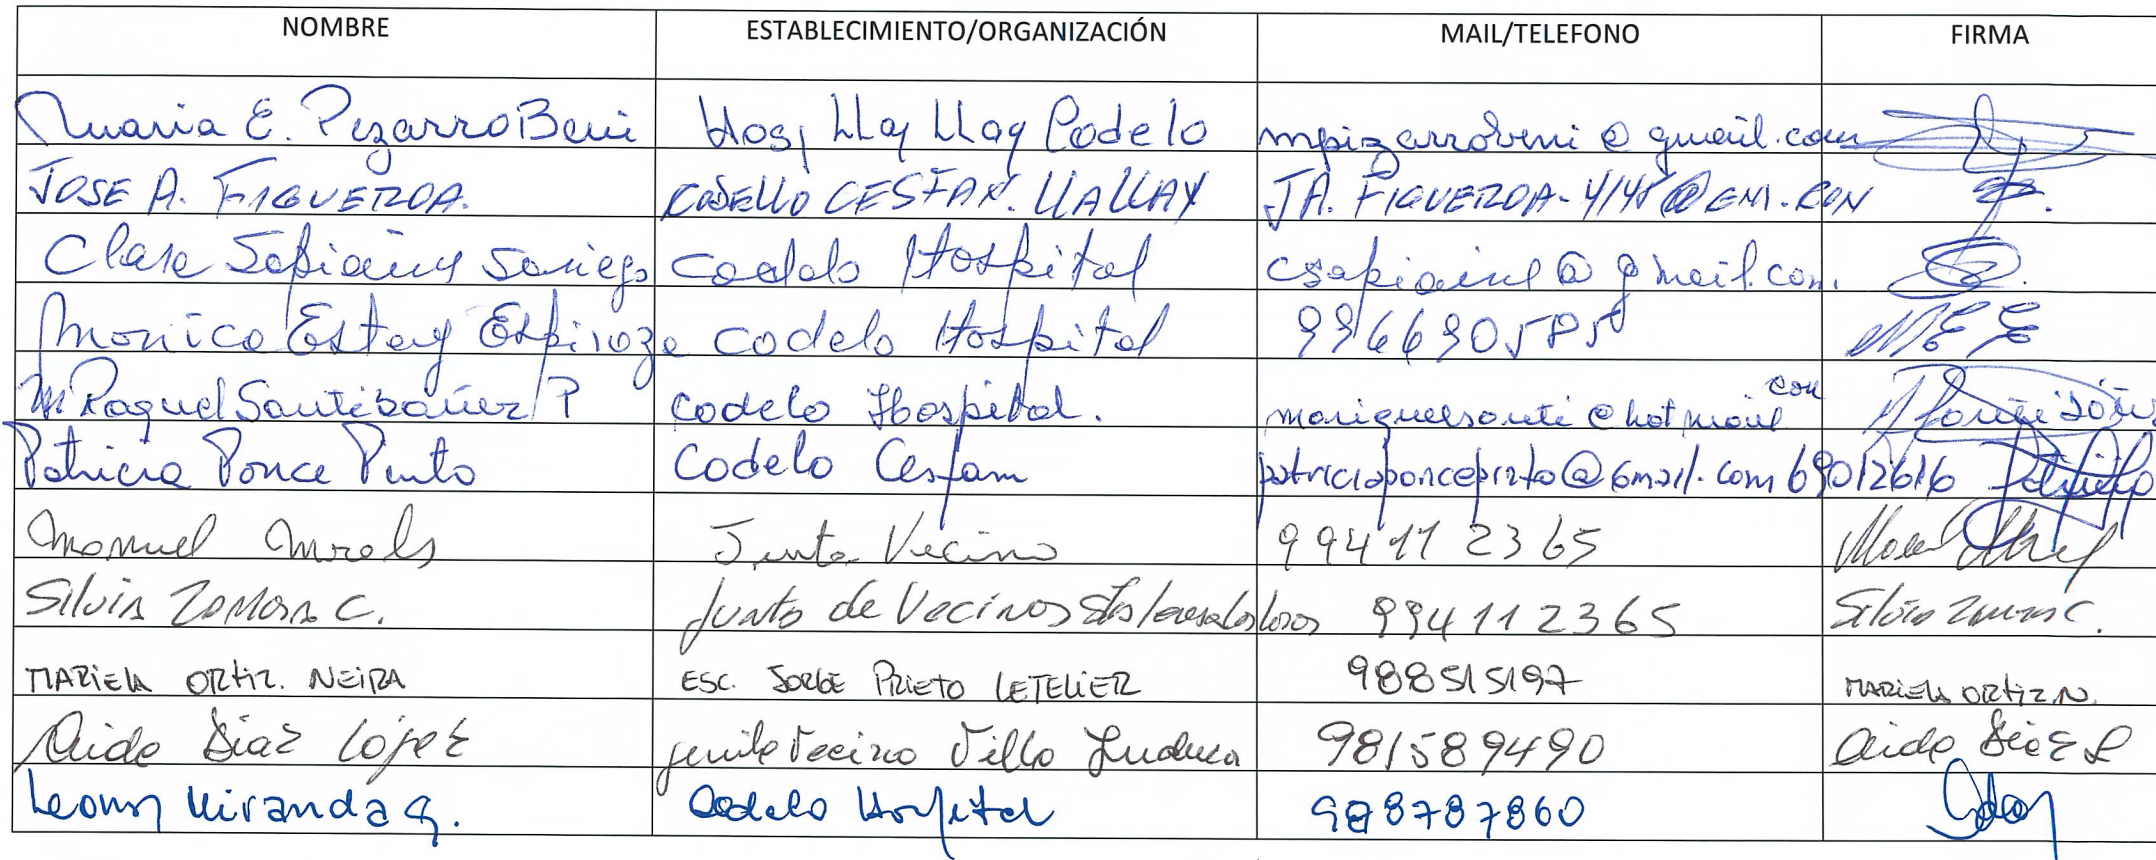 NOMBRE ESTABLECIMIENTO/ORGANIZACIÓN MAIL/TELEFONO FIRMA
Maria E. Pizarro Beni Hosp Llay Llay Codelo mpizarrobeni@gmail.com
JOSE A. FIGUEROA. CODELLO CESFAN. LLALLAY JA. FIGUEROA-
Clara Sapiainy Soriego Codelo Hospital csapiainy@gmail.com.
Monica Estay Espinoza Codelo Hospital MEE
M Raquel Santibañez P Codelo Hospital. @hotmail com
Patricia Ponce Pinto Codelo Cesfam patriciaponcepinto@Gmail.com 69012616
Manuel Junta Vecino 994112365
Silvia Zamora C. Junta de Vecinos 994112365 Silvia Zamora C.
MARIELA ORTIZ. NEIRA ESC. JORGE PRIETO LETELIER 988515197 MARIELA ORTIZ N.
Aida Diaz Lopez Vecino Villa 981589490 Aida Diaz L
Leony Miranda G. Codelo Hospital 988787860